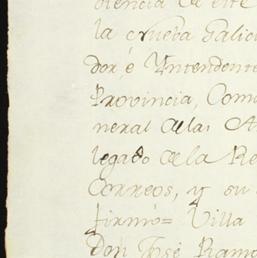 diencia de este
la nueva Galici
dor, é Yntendente
Provincia, Com
neral de las A
legado de la Re
Correos, y su
firmó= Villa
Don José Ramo